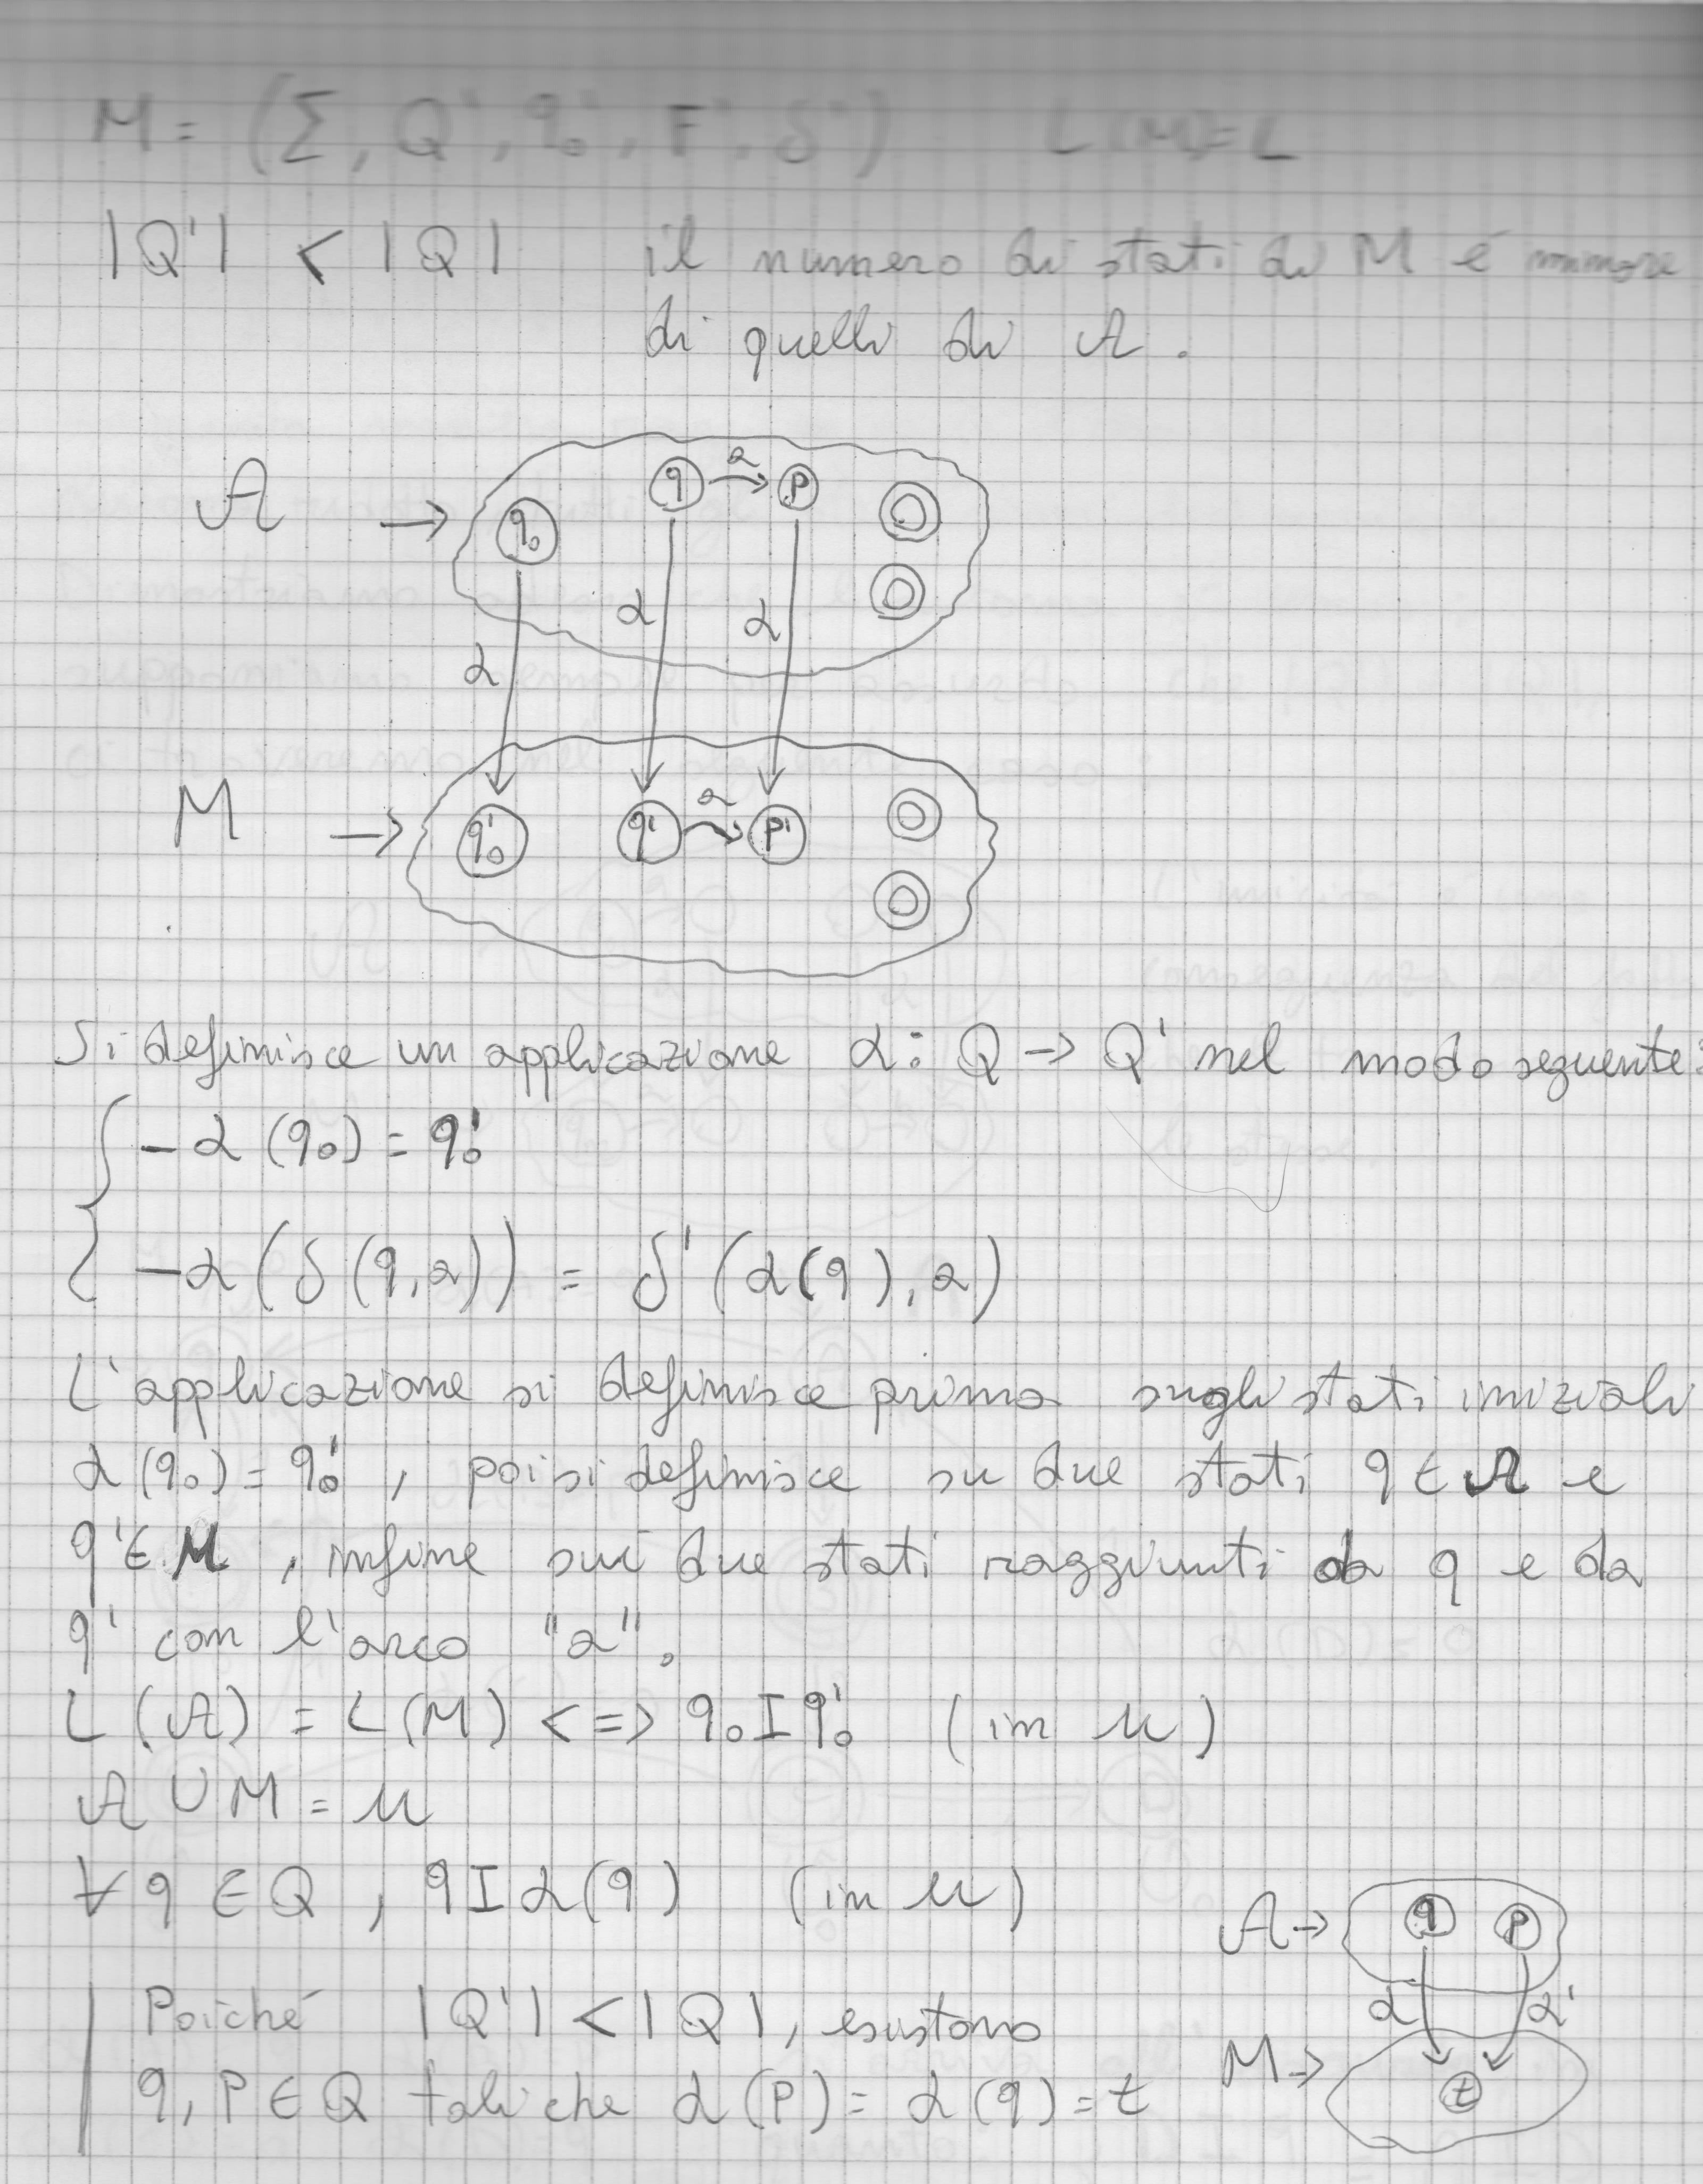 M = (Σ, Q', q₀', F', δ') L(M)=L
|Q'| < |Q| il numero di stati di M é minore
di quelli di A.
q a p
q₀
α α
α
A →
M →
a
q₀' q' p'
Si definisce un applicazione α: Q -> Q' nel modo seguente:
- α (q₀) = q₀'
- α (δ (q, a)) = δ' (α(q), a)
L'applicazione si definisce prima sugli stati iniziali
α (q₀) = q₀', poi si definisce su due stati q ∈ A e
q' ∈ M, infine sui due stati raggiunti da q e da
q' con l'arco "a".
L (A) = L (M) <=> q₀ I q₀' (in U)
A ∪ M = U
∀ q ∈ Q, q I α(q) (in U)
A → q p
Poiché |Q'| < |Q|, esistono
α α'
M →
q, P ∈ Q tali che α (P) = α (q) = t
t